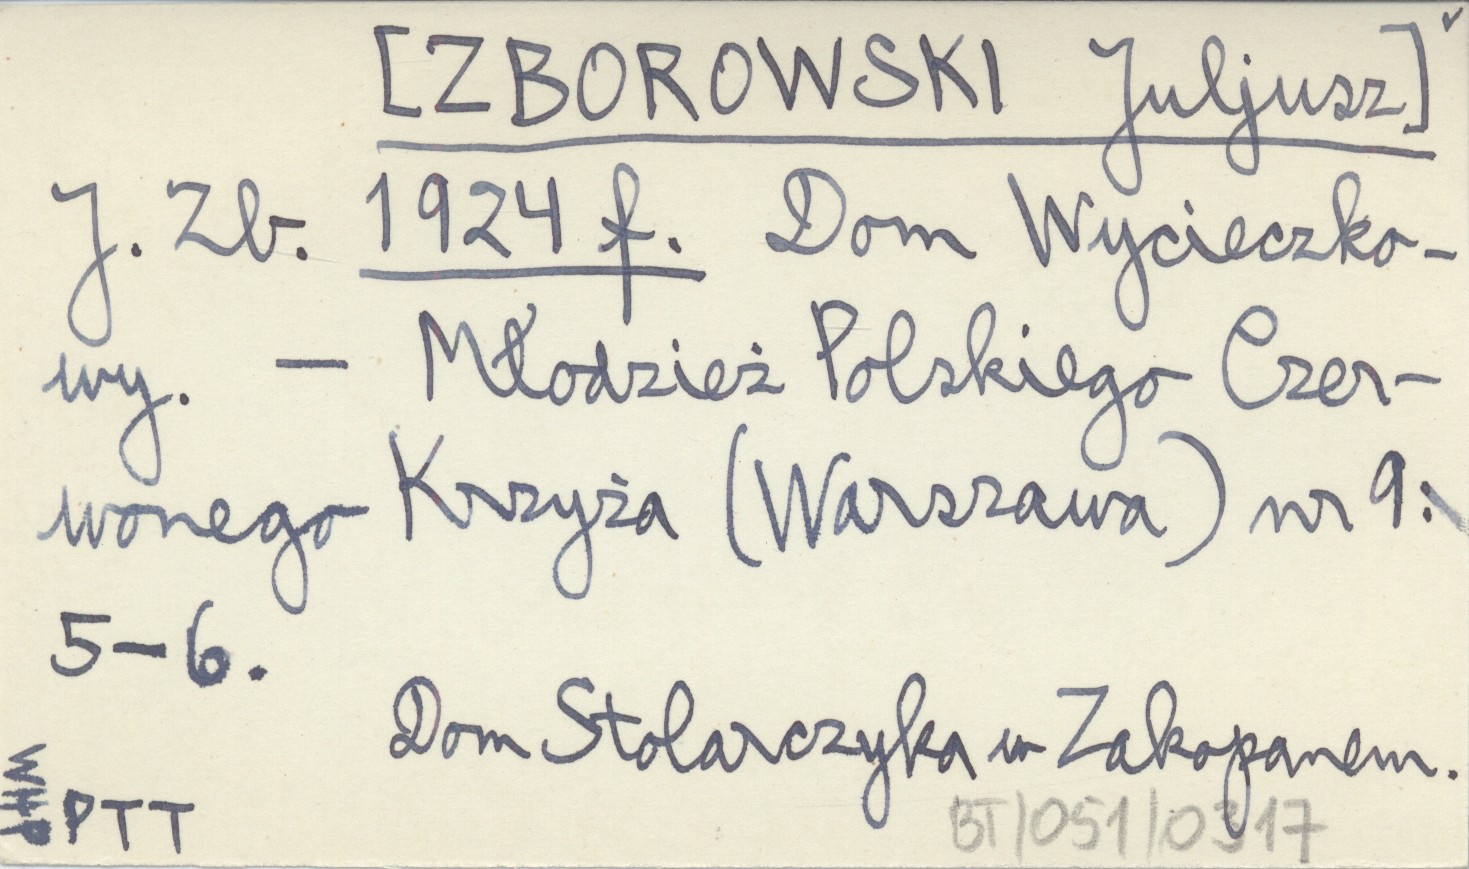 [ZBOROWSKI Juljusz]
J. Zb. 1924 f. Dom Wycieczko-
wy. — Młodzież Polskiego Czer-
wonego Krzyża (Warszawa) nr 9:
5-6.
Dom Stolarczyka w Zakopanem.
WHP
PTT
BT/051/0317